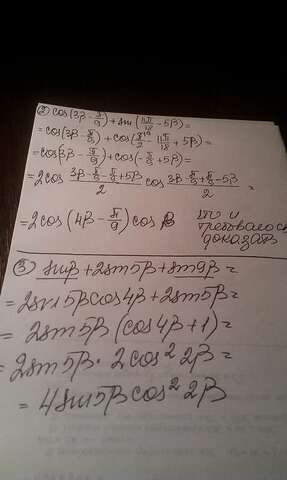 ② cos(3β - π/9) + sin(11π/18 - 5β) =
= cos(3β - π/9) + cos(π/2 - 11π/18 + 5β) =
= cos(3β - π/9) + cos(-π/9 + 5β) =
= 2cos (3β - π/9 - π/9 + 5β)/2 cos (3β - π/9 + π/9 - 5β)/2 =
= 2cos(4β - π/9) cos β что и
требовалось
доказать
③ sinβ + 2sin5β + sin9β =
= 2sin5βcos4β + 2sin5β =
= 2sin5β (cos4β + 1) =
= 2sin5β · 2cos² 2β =
= 4sin5βcos² 2β